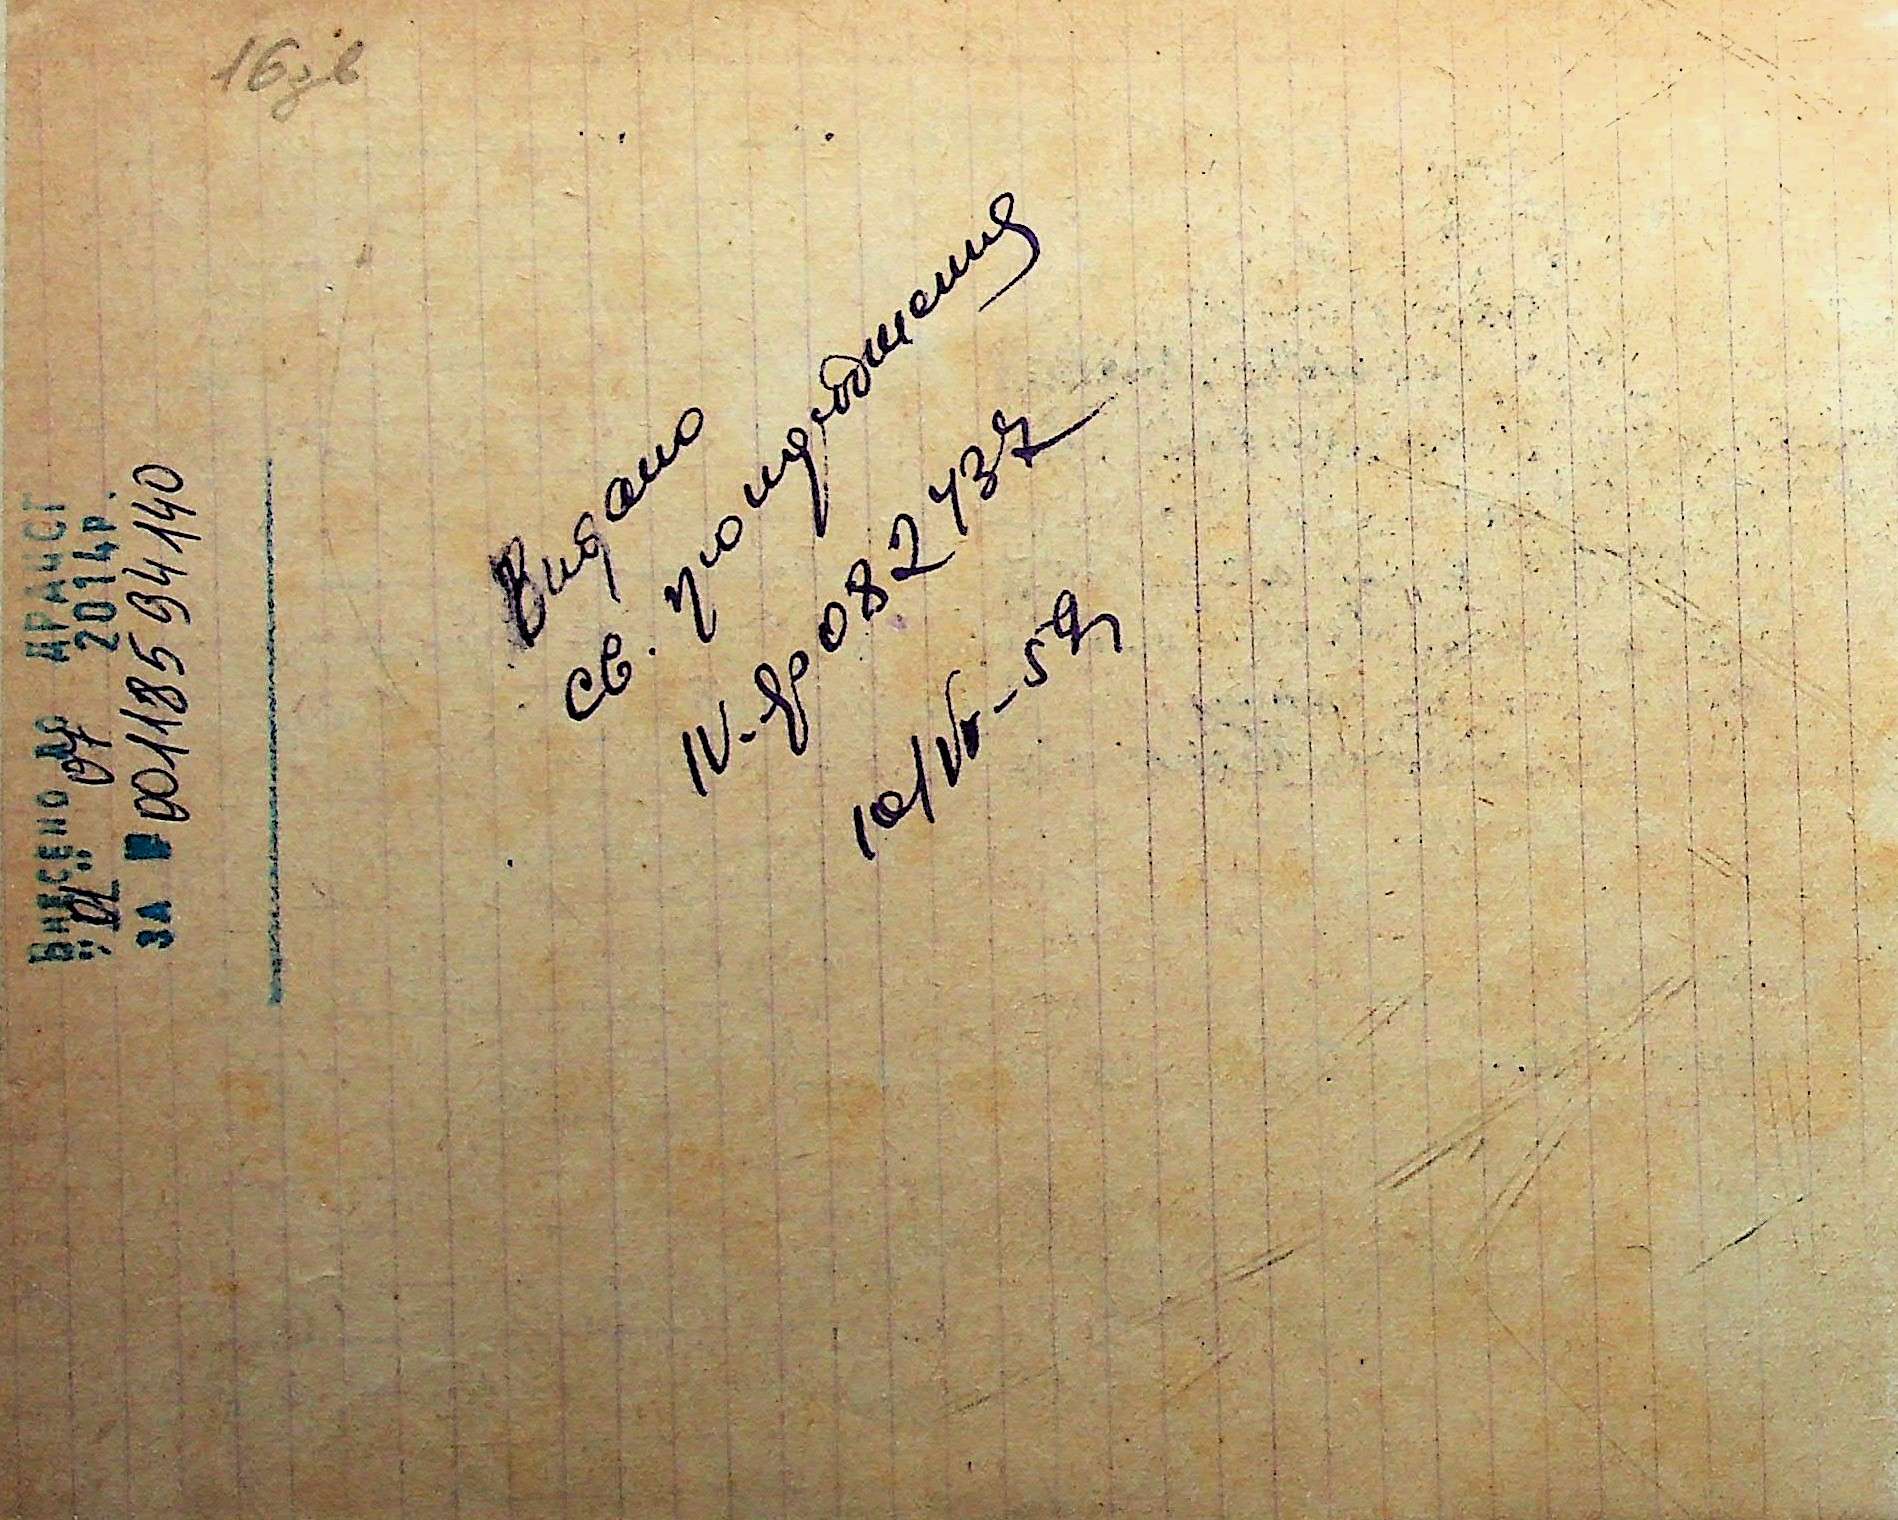 16зв
Внесено до ДРАЦСГ
"01" 07 2014р.
ЗА № 00118594140
Видано
св. про народження
IV-
082437
10/VI-59р